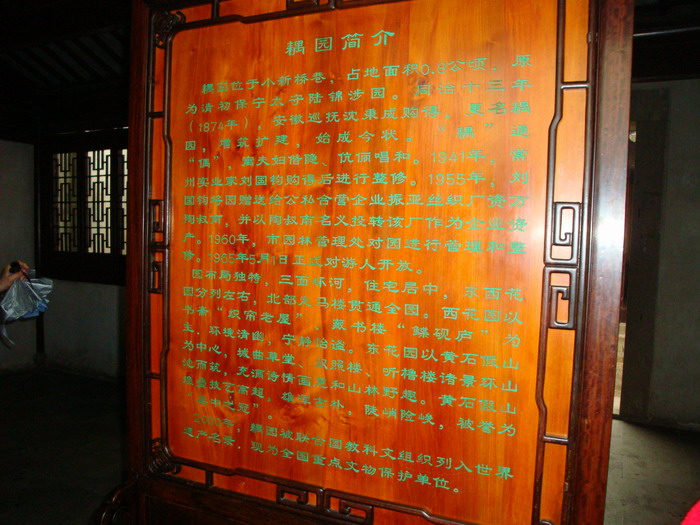 耦园简介
耦园位于小新桥巷，占地面积0.8公顷。原
为清初保宁太子陆锦涉园。同治十三年
（1874年），安徽巡抚沈秉成购得，更名耦
园，增筑扩建，始成今状。“耦”通
“偶”，寓夫妇偕隐、伉俪唱和。1941年，常
州实业家刘国钧购得后进行整修。1955年，刘
国钧将园赠送给公私合营企业振亚丝织厂资方
陶叔南，并以陶叔南名义投转该厂作为企业资
产。1960年，市园林管理处对园进行管理和整
修。1965年5月1日正式对游人开放。
园布局独特，三面环河，住宅居中，东西花
园分列左右，北部走马楼贯通全园。西花园以
书斋“织帘老屋”、藏书楼“鲽砚庐”为
主，环境清幽，宁静怡谧。东花园以黄石假山
为中心，城曲草堂、双照楼、听橹楼诸景环山
池而筑，充满诗情画意和山林野趣。黄石假山
堆叠技艺高超，雄浑古朴，陡峭险峻，被誉为
“吴中之冠”。
2000年，耦园被联合国教科文组织列入世界
遗产名录，现为全国重点文物保护单位。